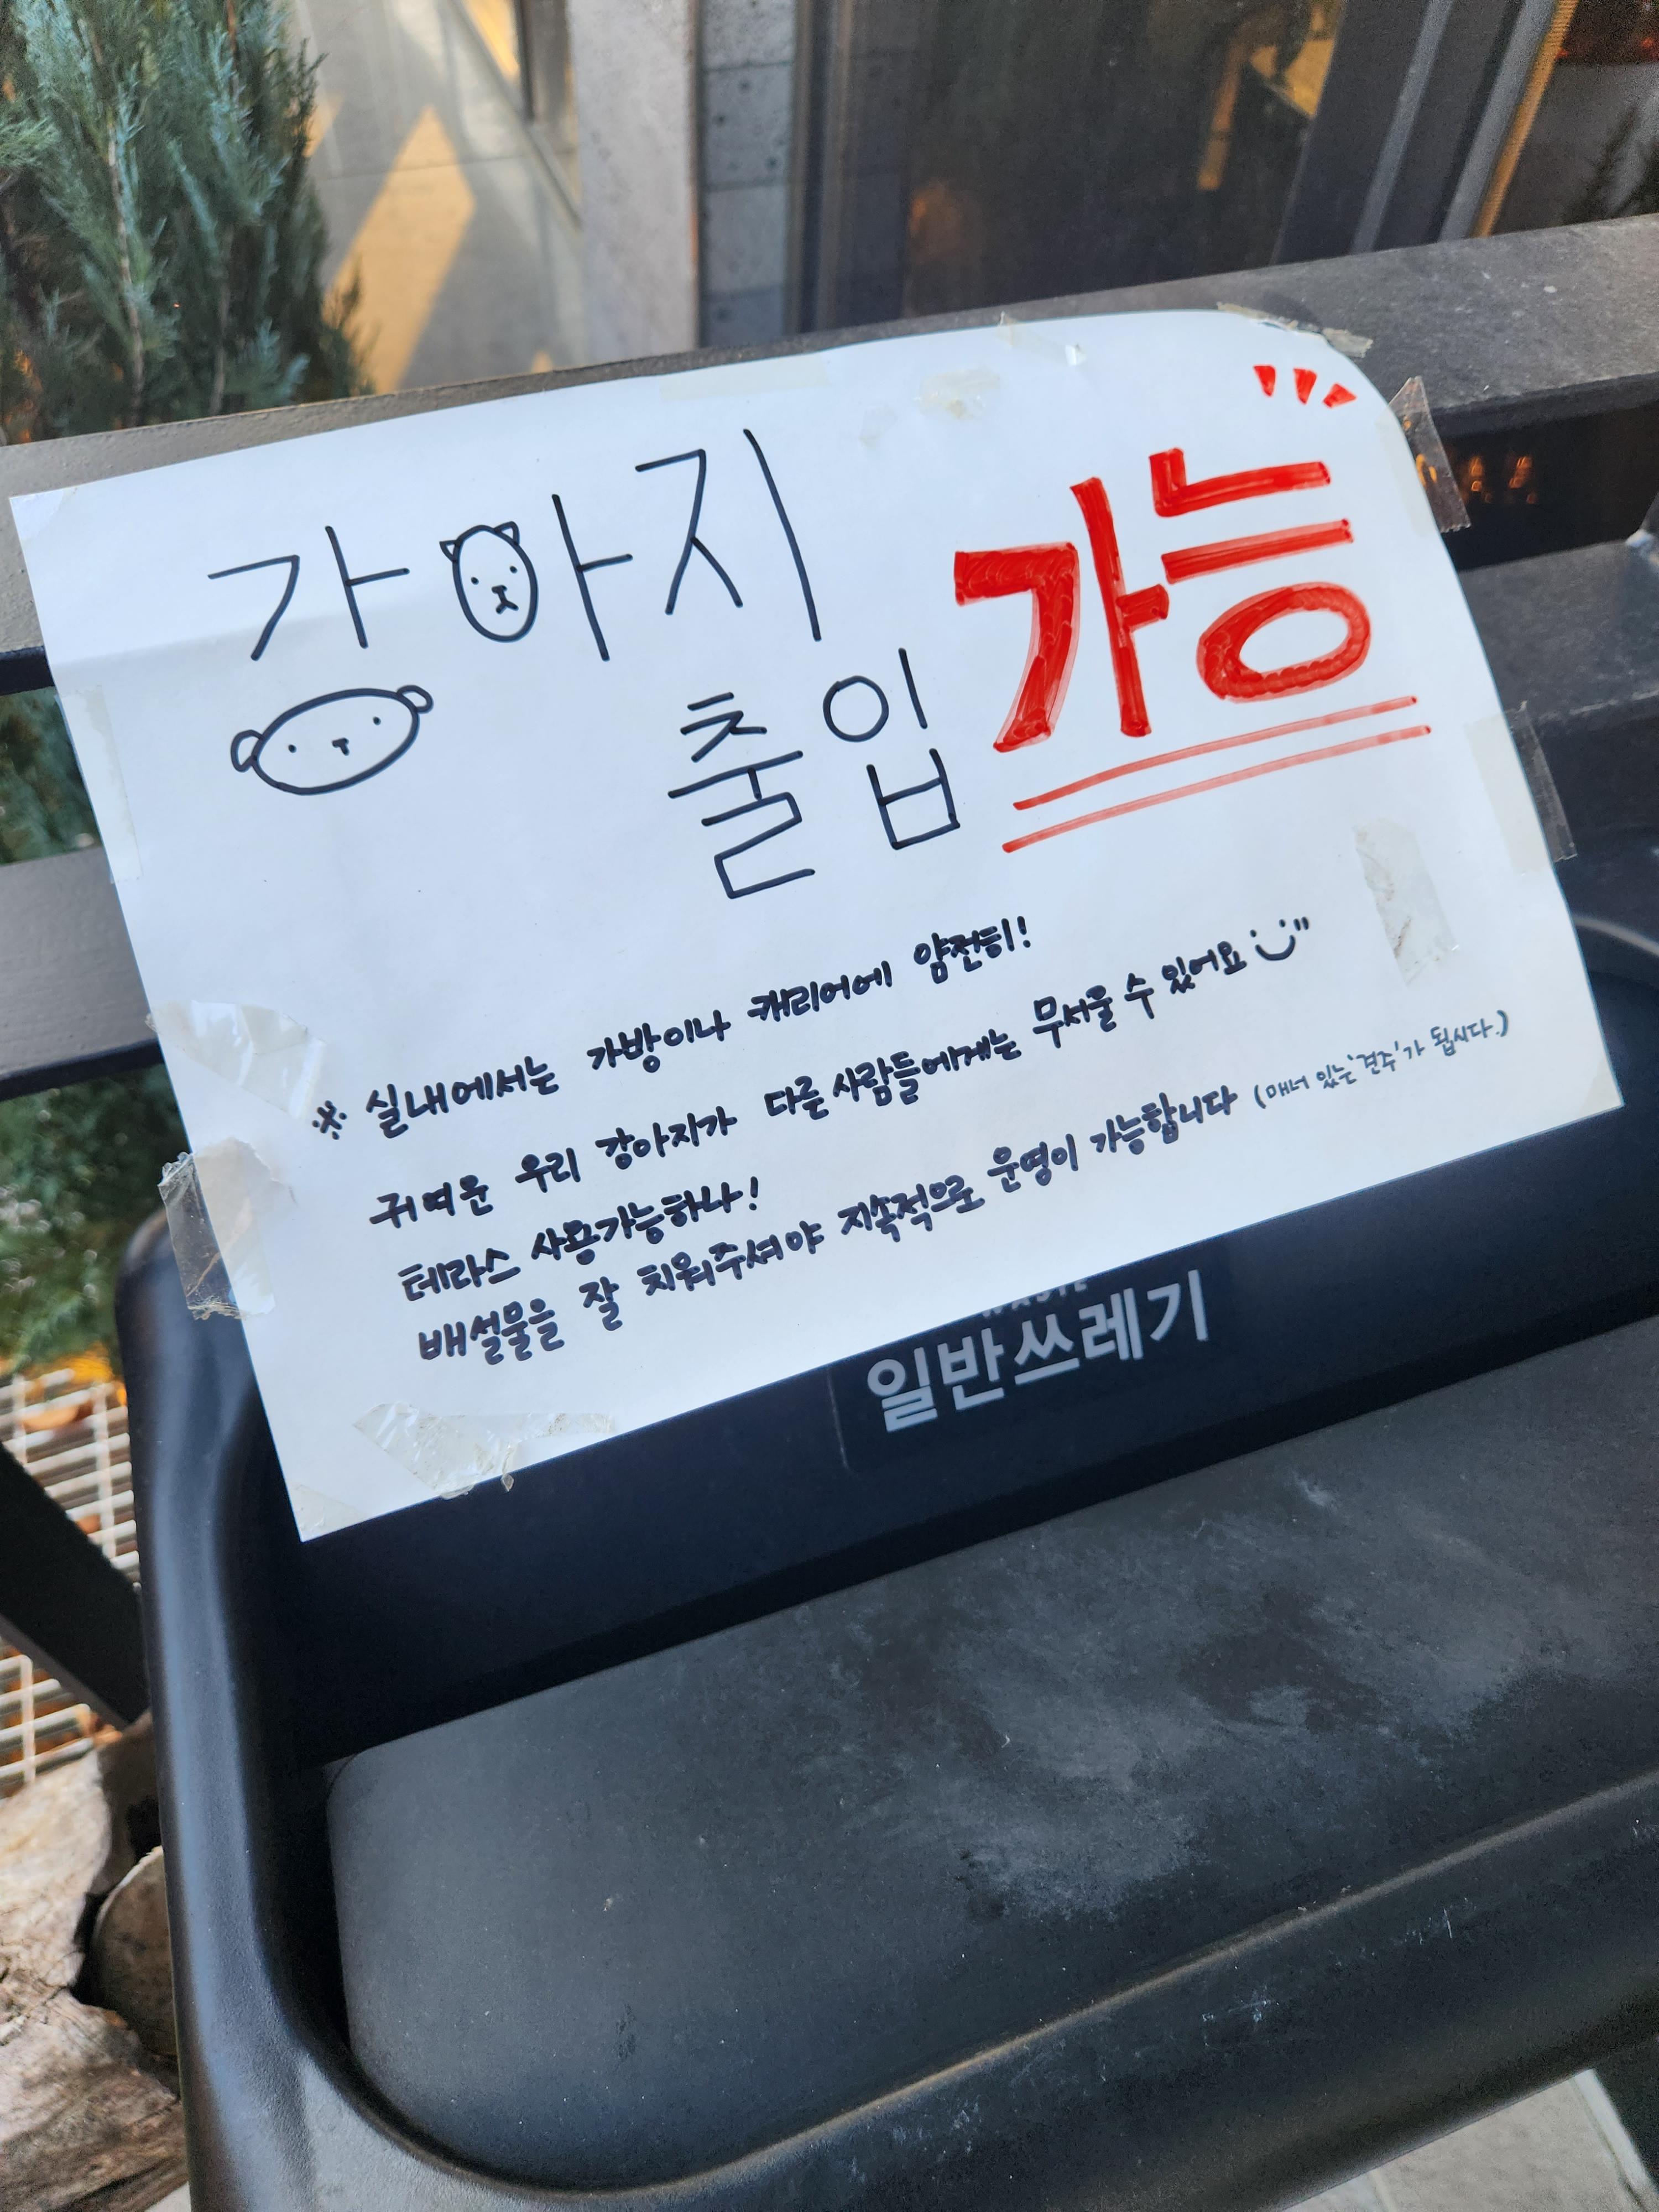 강아지
출입 가능
※ 실내에서는 가방이나 캐리어에 얌전히!
귀여운 우리 강아지가 다른 사람들에게는 무서울 수 있어요
테라스 사용가능하나!
배설물을 잘 치워주셔야 지속적으로 운영이 가능합니다 (매너 있는 '견주'가 됩시다.)
일반쓰레기